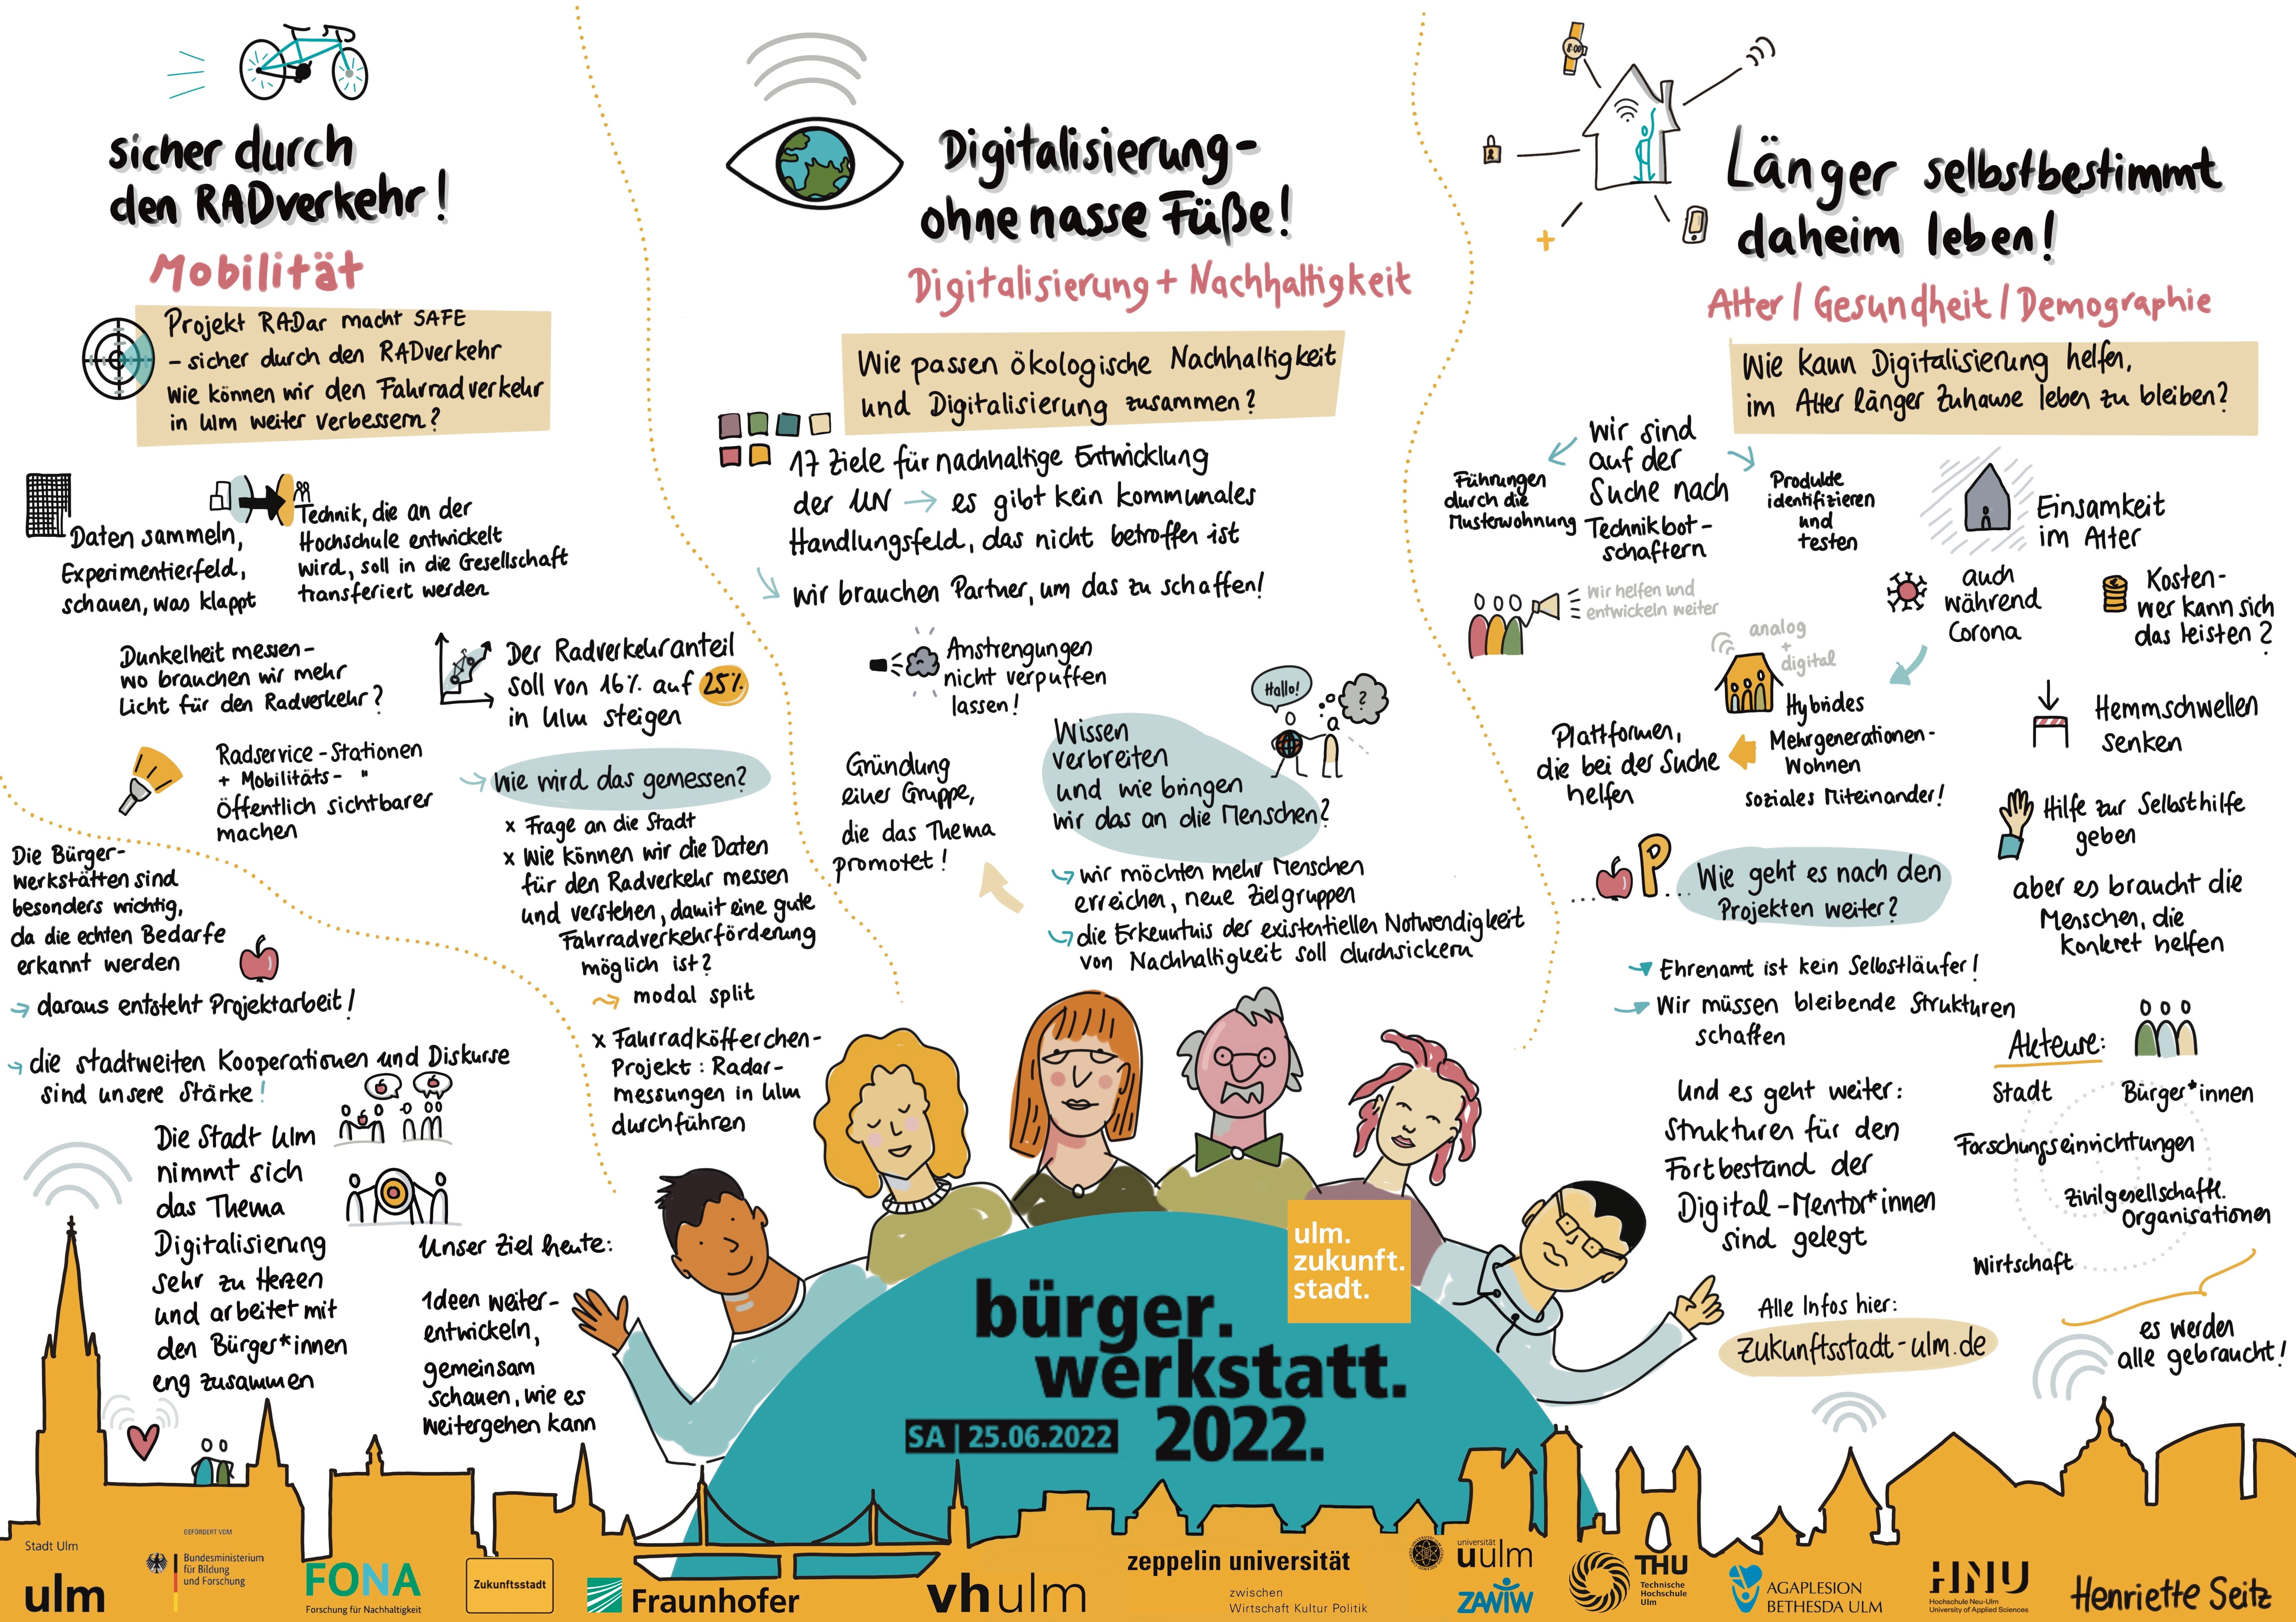 sicher durch
den RADverkehr!
Mobilität
Projekt RADar macht SAFE
- sicher durch den RADverkehr
Wie können wir den Fahrradverkehr
in Ulm weiter verbessern?
Daten sammeln,
Experimentierfeld,
schauen, was klappt
Technik, die an der
Hochschule entwickelt
wird, soll in die Gesellschaft
transferiert werden
Dunkelheit messen -
wo brauchen wir mehr
Licht für den Radverkehr?
Der Radverkehranteil
soll von 16% auf 25%
in Ulm steigen
Radservice - Stationen
+ Mobilitäts- "
öffentlich sichtbarer
machen
wie wird das gemessen?
x Frage an die Stadt
x Wie können wir die Daten
für den Radverkehr messen
und verstehen, damit eine gute
Fahrradverkehrförderung
möglich ist?
modal split
x Fahrradköfferchen-
Projekt: Radar-
messungen in Ulm
durchführen
Die Bürger-
werkstätten sind
besonders wichtig,
da die echten Bedarfe
erkannt werden
→ daraus entsteht Projektarbeit!
→ die stadtweiten Kooperationen und Diskurse
sind unsere Stärke!
Die Stadt Ulm
nimmt sich
das Thema
Digitalisierung
sehr zu Herzen
und arbeitet mit
den Bürger*innen
eng zusammen
Unser Ziel heute:
Ideen weiter-
entwickeln,
gemeinsam
schauen, wie es
weitergehen kann
Digitalisierung-
ohne nasse Füße!
Digitalisierung + Nachhaltigkeit
Wie passen ökologische Nachhaltigkeit
und Digitalisierung zusammen?
17 Ziele für nachhaltige Entwicklung
der UN → es gibt kein kommunales
Handlungsfeld, das nicht betroffen ist
wir brauchen Partner, um das zu schaffen!
Anstrengungen
nicht verpuffen
lassen!
Hallo!
?
Wissen
verbreiten
und wie bringen
wir das an die Menschen?
Gründung
einer Gruppe,
die das Thema
promotet!
wir möchten mehr Menschen
erreichen, neue Zielgruppen
die Erkenntnis der existentiellen Notwendigkeit
von Nachhaltigkeit soll durchsickern
8:00
Länger selbstbestimmt
daheim leben!
Alter / Gesundheit / Demographie
Wie kann Digitalisierung helfen,
im Alter länger Zuhause leben zu bleiben?
Wir sind
auf der
Suche nach
Technikbot-
schaftern
Führungen
durch die
Musterwohnung
Produkte
identifizieren
und
testen
Wir helfen und
entwickeln weiter
Einsamkeit
im Alter
auch
während
Corona
Kosten-
wer kann sich
das leisten?
analog
+
digital
Hybrides
Mehrgenerationen-
Wohnen
soziales Miteinander!
Plattformen,
die bei der Suche
helfen
Hemmschwellen
senken
Hilfe zur Selbsthilfe
geben
aber es braucht die
Menschen, die
konkret helfen
... P...
Wie geht es nach den
Projekten weiter?
→ Ehrenamt ist kein Selbstläufer!
→ Wir müssen bleibende Strukturen
schaffen
Und es geht weiter:
Strukturen für den
Fortbestand der
Digital-Mentor*innen
sind gelegt
Akteure:
Stadt
Bürger*innen
Forschungseinrichtungen
Zivilgesellschaftl.
Organisationen
Wirtschaft
es werden
alle gebraucht!
Alle Infos hier:
Zukunftsstadt-ulm.de
ulm.
zukunft.
stadt.
bürger.
werkstatt.
2022.
SA | 25.06.2022
Stadt Ulm
ulm
GEFÖRDERT VOM
Bundesministerium
für Bildung
und Forschung
FONA
Forschung für Nachhaltigkeit
Zukunftsstadt
Fraunhofer
vhulm
zeppelin universität
zwischen
Wirtschaft Kultur Politik
universität
uulm
ZAWiW
THU
Technische
Hochschule
Ulm
AGAPLESION
BETHESDA ULM
HNU
Hochschule Neu-Ulm
University of Applied Sciences
Henriette Seitz